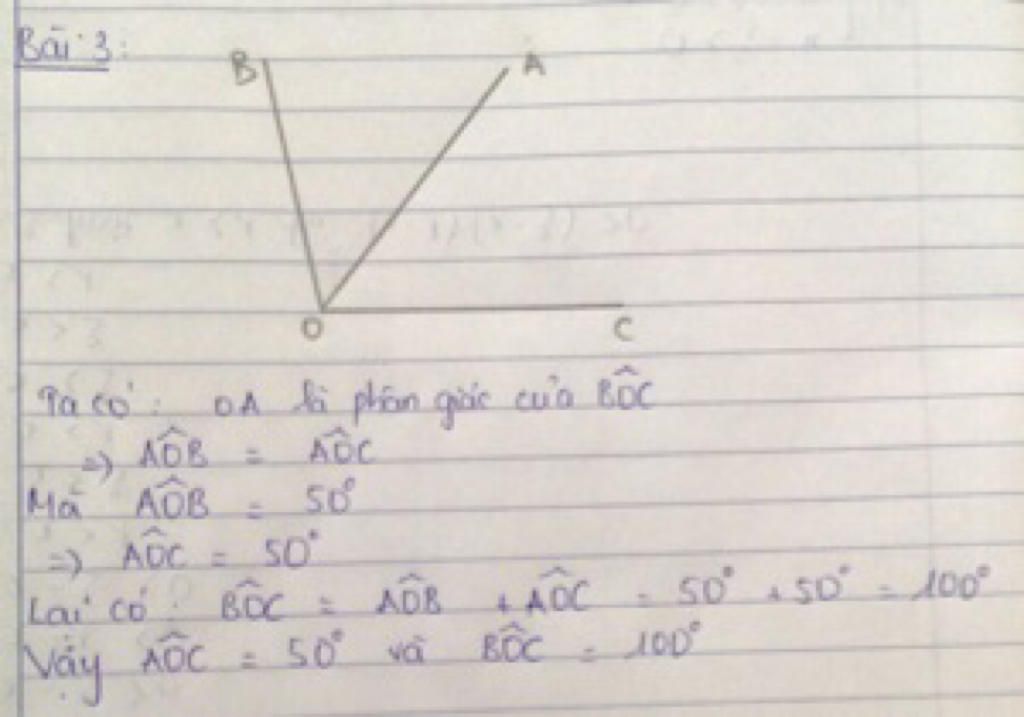 Bài 3:
B A
O C
Ta có: OA là phân giác của BÔC
=> AÔB = AÔC
Mà AÔB = 50°
=> AÔC = 50°
Lại có: BÔC = AÔB + AÔC = 50° + 50° = 100°
Vậy AÔC = 50° và BÔC = 100°